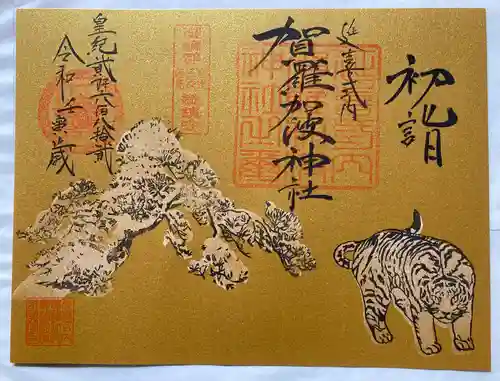 初詣
延喜式内
賀羅加波神社
皇紀貳阡六百八拾貳
令和壬寅歳